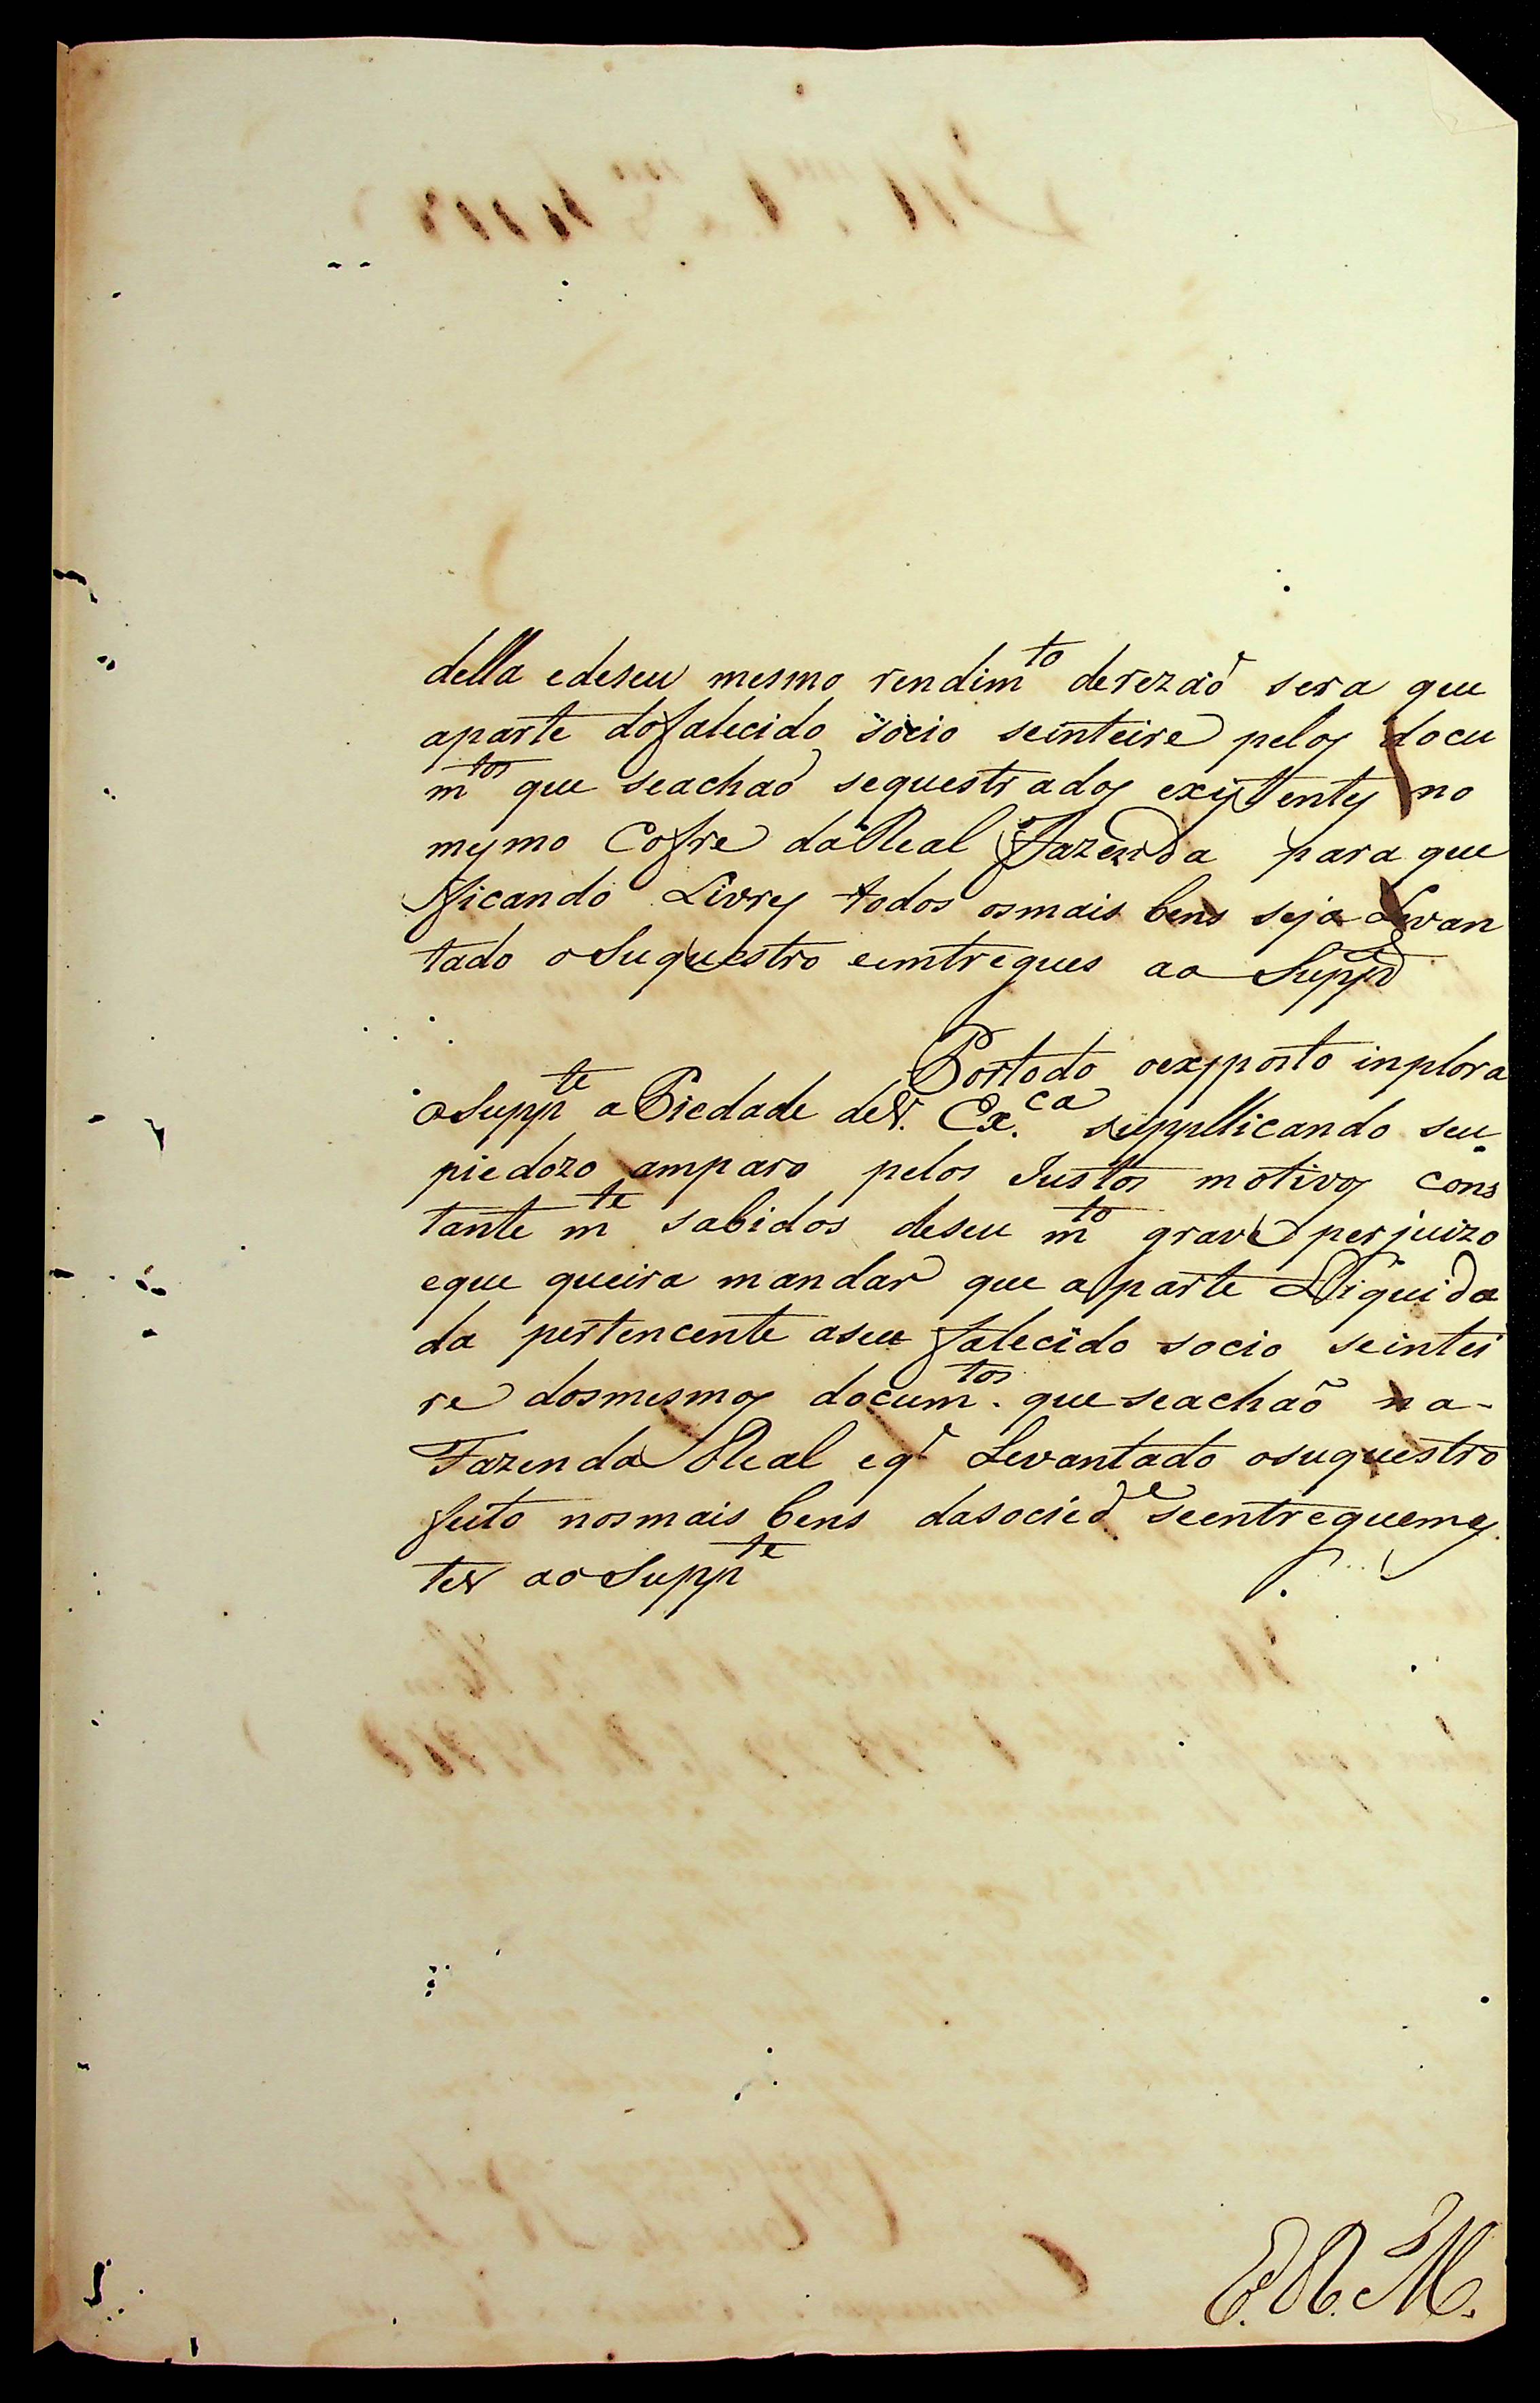 della edeseu mesmo rendim.to derezaõ sera que
aparte dofalecido socio seinteire pelos docu
m.tos que seachaõ sequestrados existentes no
mesmo Cofre daReal Fazenda para que
ficando Livres todos osmais bens seja Levan
tado oSuquestro eentregues ao Supp.e
Portodo oexpposto inplora
oSupp.te aPiedade deV. Ex.ca suppllicando seu
piedozo amparo pelos Justos motivos cons
tante m.te sabidos deseu m.to grave perjuizo
eque queira mandar que aparte Liquida
da pertencente aseu falecido socio seintei
re dosmesmos docum.tos que seachaõ na-
Fazenda Real eq.e Levantado osuquestro
feito nosmais bens dasocied.e seentreguemes
tes ao Supp.te
E. R. M.